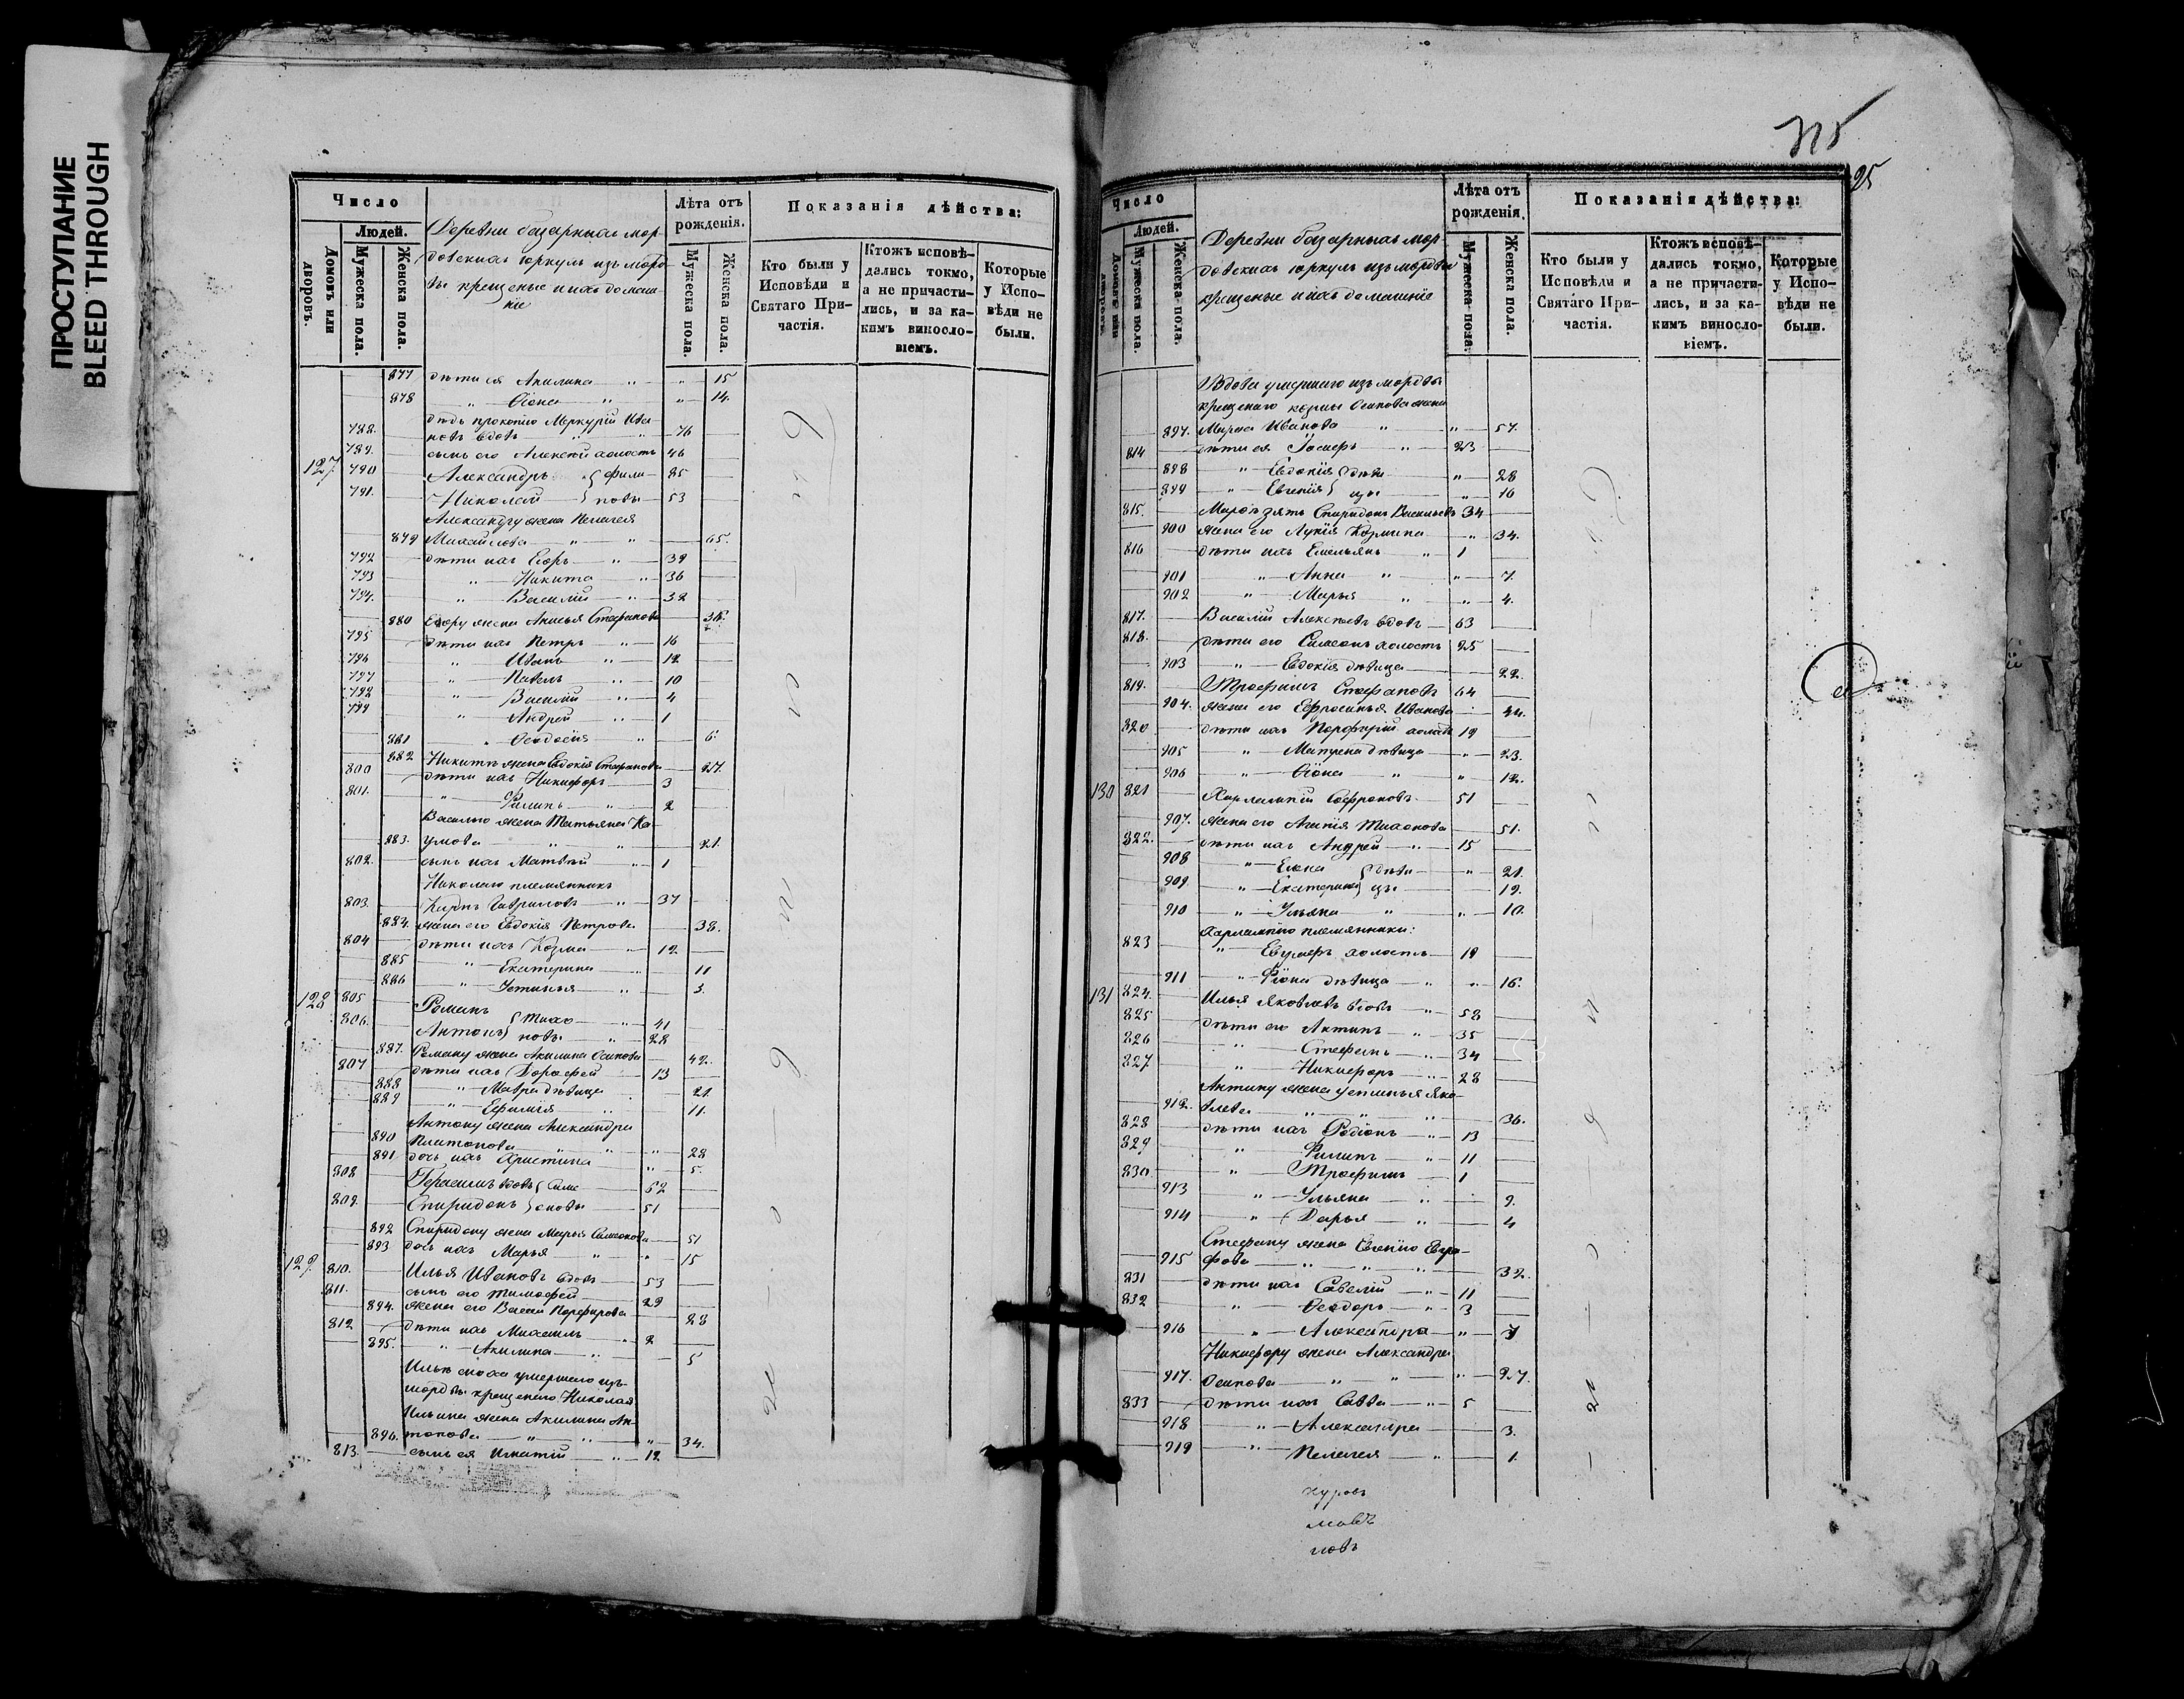 ПРОСТУПАНИЕ
BLEED THROUGH
Число
Людей.
Домовъ или дворовъ.
Мужеска пола.
Женска пола.
Деревни базарныхъ мор-
довскихъ юркуль изъ морд-
вы крещеные и ихъ домаш-
ніе
Лѣта отъ рожденія.
Мужеска пола.
Женска пола.
Показанія дѣйства:
Кто были у Исповѣди и Святаго При-частія.
Ктожъ исповѣ-дались токмо, а не причасти-лись, и за ка-кимъ виносло-віемъ.
Которые у Испо-вѣди не были.
877 дѣти ея Акилина " " 15
878 " " " 14.
788. дѣдъ прокопію Меркурій Ива-
новъ вдовъ " " 76
789. сынъ его Алексѣй холостъ 46
127 790 Александръ } фили- 85
791. Николай } повы 53
Александру жена Пелагея
879 Михайлова " " 65.
792 дѣти ихъ Егоръ " 39
793 " Никита " 36
794. " Василій " 32
880 Егору жена Анисья Стефанова
795 дѣти ихъ Петръ " 16
796 " Иванъ " 12
797 " Павелъ " 10
798 " Василій " 4
799 " Андрей " 1
881 " Ѳеодосія " 6.
882 Никитѣ жена Евдокія Стефанова 27.
800 дѣти ихъ Никифоръ 3
801. " Филипъ " 2
Василью жена Татьяна На-
883. умова " " 21
802. сынъ ихъ Матвѣй " 1
Николаю племянникъ
803. Карпъ Гавриловъ " 37
884. жена его Евдокія Петрова 38.
804 дѣти ихъ Козма " 12
885 " Екатерина " 11
886 " Устинья " 3.
128 805 Романъ } Тихо- " 41
806. Антонъ } новы " 28
887. Роману жена Акилина Осипова 42.
807 дѣти ихъ Дорофей 13
888 " Мавра дѣвица 21.
889 " Ефимія " 11.
Антону жена Александра
890 Платонова " " 28
891 дочь ихъ Христина " 5.
808 Герасимъ вдовъ } Симе- 62
809. Спиридонъ } оновы 51
892 Спиридону жена Марья Симеонова 51
893 дочь ихъ Марья " " 15
129. 810. Илья Ивановъ вдовъ 53
811. сынъ его Тимофей 29
894. жена его Васса Порфирова 28
812 дѣти ихъ Михаилъ " 2
895. " Акилина " 5
Ильѣ сноха умершаго изъ
мордвы крещенаго Николая
Ильина жена Акилина Ан-
896. тонова " " " 34.
813. сынъ ея Игнатій " 12
315
25
Число
Людей.
Домовъ или дворовъ.
Мужеска пола.
Женска пола.
Деревни базарныхъ мор-
довскихъ юркуль изъ мордвы
крещеные и ихъ домашніе
Лѣта отъ рожденія.
Мужеска пола.
Женска пола.
Показанія дѣйства:
Кто были у Исповѣди и Святаго При-частія.
Ктожъ исповѣ-дались токмо, а не причасти-лись, и за ка-кимъ виносло-віемъ.
Которые у Испо-вѣди не были.
Вдова умершаго изъ мордвы
крещенаго козмы Осипова жена
897. Иванова " " 57.
814 дѣти ея Іосифъ " 23
898 " Евдокія } дѣви- " 28
899 " Евгенія } цы " 16
815. зять Спиридонъ Васильевъ 34
900 жена его Лукія Козмина " 34.
816 дѣти ихъ Емельянъ " 1
901 " Анна " " 7.
902 " Марья " " 4.
817. Василій Алексѣевъ вдовъ 63
818. дѣти его Симеонъ холостъ 25
903 " Евдокія дѣвица 22.
819. Трофимъ Стефановъ 64
904. жена его Ефросинья Иванова
820 дѣти ихъ Порфирій холостъ 19
905 " Матрена дѣвица " 23.
906 " " " 12.
130 821 Харлампій Софроновъ 51
907. жена его Агапія Тихонова 51.
822. дѣти ихъ Андрей " 15
908 " Елена } дѣви- " 21.
909. " Екатерина } цы 19.
910 " Ульяна " " 10.
Харлампію племянники:
823 " холостъ 19
911 " дѣвица " " 16.
131 824. Илья Яковлевъ вдовъ " 58
825 дѣти его Антипъ " 35
826 " Стефанъ " 34
827 " Никифоръ " 28
Антипу жена Устинья Яко-
912. влева " " " 36.
828 дѣти ихъ Родіонъ " 13
829 " Филипъ " 11
830. " Трофимъ 1
913 " Ульяна " 9.
914 " Дарья " 4
Стефану жена Евгенія Евгра-
915 фова " " " 32.
831 дѣти ихъ Савелій " 11
832 " Ѳеодоръ " 3
916 " Александра " 7
Никифору жена Александра
917. Осипова " " " 27.
833 дѣти ихъ Савва " 5
918 " Александра 3.
919 " Пелагея " 1.